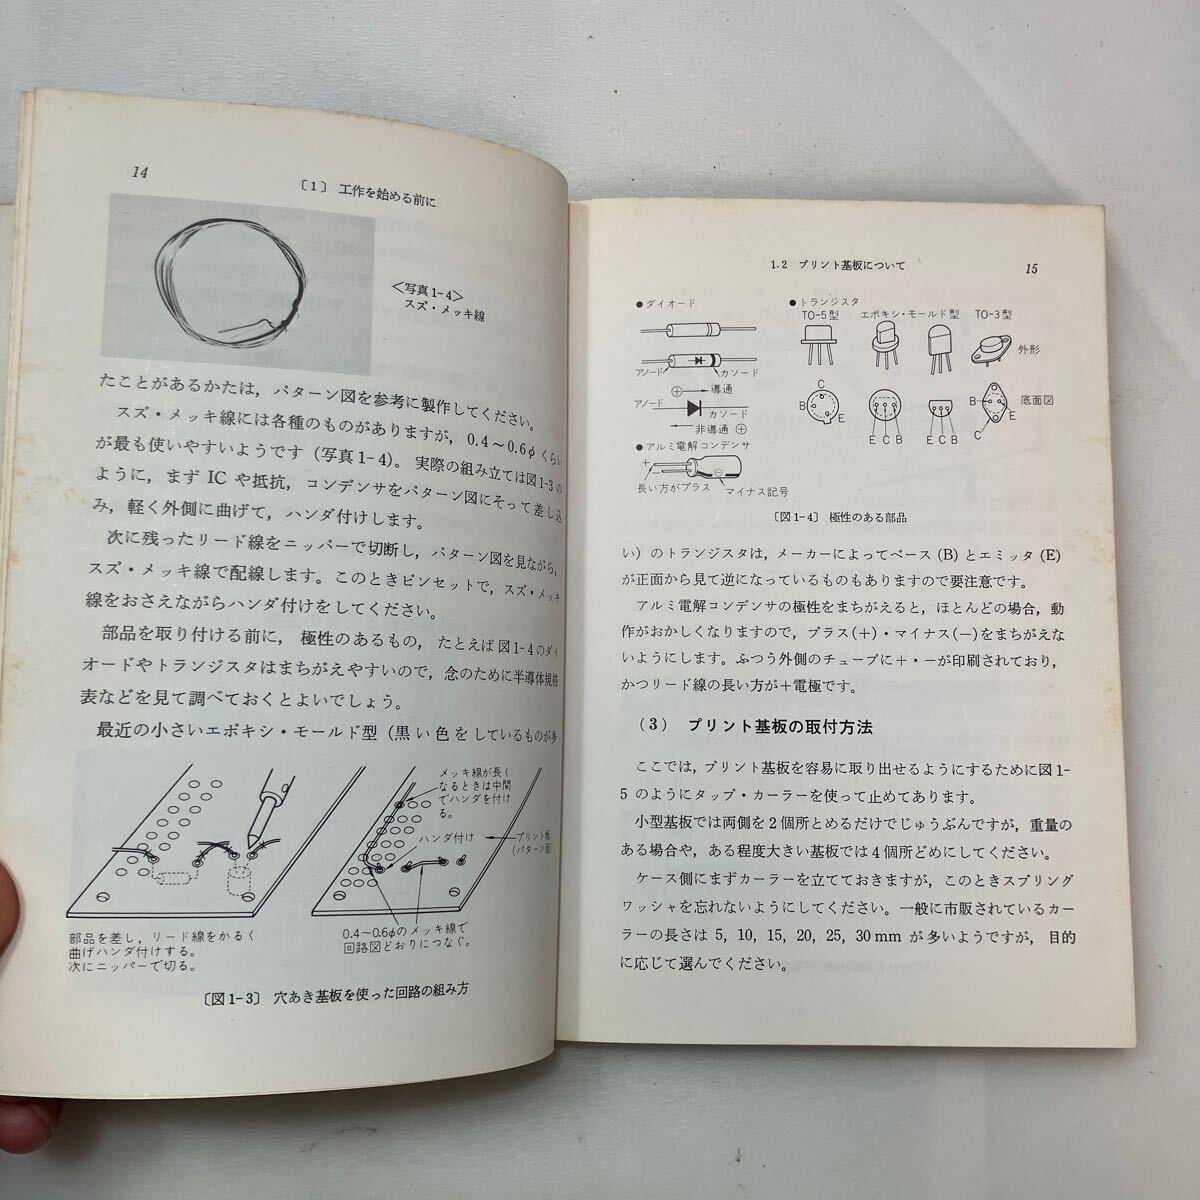 14
〔1〕 工作を始める前に
<写真1-4>
スズ・メッキ線
たことがあるかたは，パターン図を参考に製作してください。
スズ・メッキ線には各種のものがありますが，0.4～0.6φくらい
が最も使いやすいようです（写真1-4）。実際の組み立ては図1-3の
ように，まず IC や抵抗，コンデンサをパターン図にそって差し込
み，軽く外側に曲げて，ハンダ付けします。
次に残ったリード線をニッパーで切断し，パターン図を見ながら，
スズ・メッキ線で配線します。このときピンセットで，スズ・メッキ
線をおさえながらハンダ付けをしてください。
部品を取り付ける前に，極性のあるもの，たとえば図1-4のダイ
オードやトランジスタはまちがえやすいので，念のために半導体規格
表などを見て調べておくとよいでしょう。
最近の小さいエポキシ・モールド型（黒い色をしているものが多
メッキ線が長く
なるときは中間
でハンダを付け
る。
ハンダ付け
プリント板
(パターン面)
部品を差し，リード線をかるく
曲げハンダ付けする。
次にニッパーで切る。
0.4～0.6φのメッキ線で
回路図どおりにつなぐ。
〔図1-3〕 穴あき基板を使った回路の組み方
1.2 プリント基板について
15
●ダイオード
アノード
カソード
⊕→導通
アノード
カソード
非導通⊕
●アルミ電解コンデンサ
+
長い方がプラス
マイナス記号
●トランジスタ
TO-5型
エポキシ・モールド型
TO-3型
外形
C
B
E
E C B
E C B
B
E
C
底面図
〔図1-4〕 極性のある部品
い）のトランジスタは，メーカーによってベース (B) とエミッタ (E)
が正面から見て逆になっているものもありますので要注意です。
アルミ電解コンデンサの極性をまちがえると，ほとんどの場合，動
作がおかしくなりますので，プラス(+)・マイナス(－)をまちがえな
いようにします。ふつう外側のチューブに＋・－が印刷されており，
かつリード線の長い方が＋電極です。
（3） プリント基板の取付方法
ここでは，プリント基板を容易に取り出せるようにするために図1-
5 のようにタップ・カーラーを使って止めてあります。
小型基板では両側を2個所とめるだけでじゅうぶんですが，重量の
ある場合や，ある程度大きい基板では4個所どめにしてください。
ケース側にまずカーラーを立てておきますが，このときスプリング
ワッシャを忘れないようにしてください。一般に市販されているカー
ラーの長さは 5, 10, 15, 20, 25, 30 mm が多いようですが，目的
に応じて選んでください。